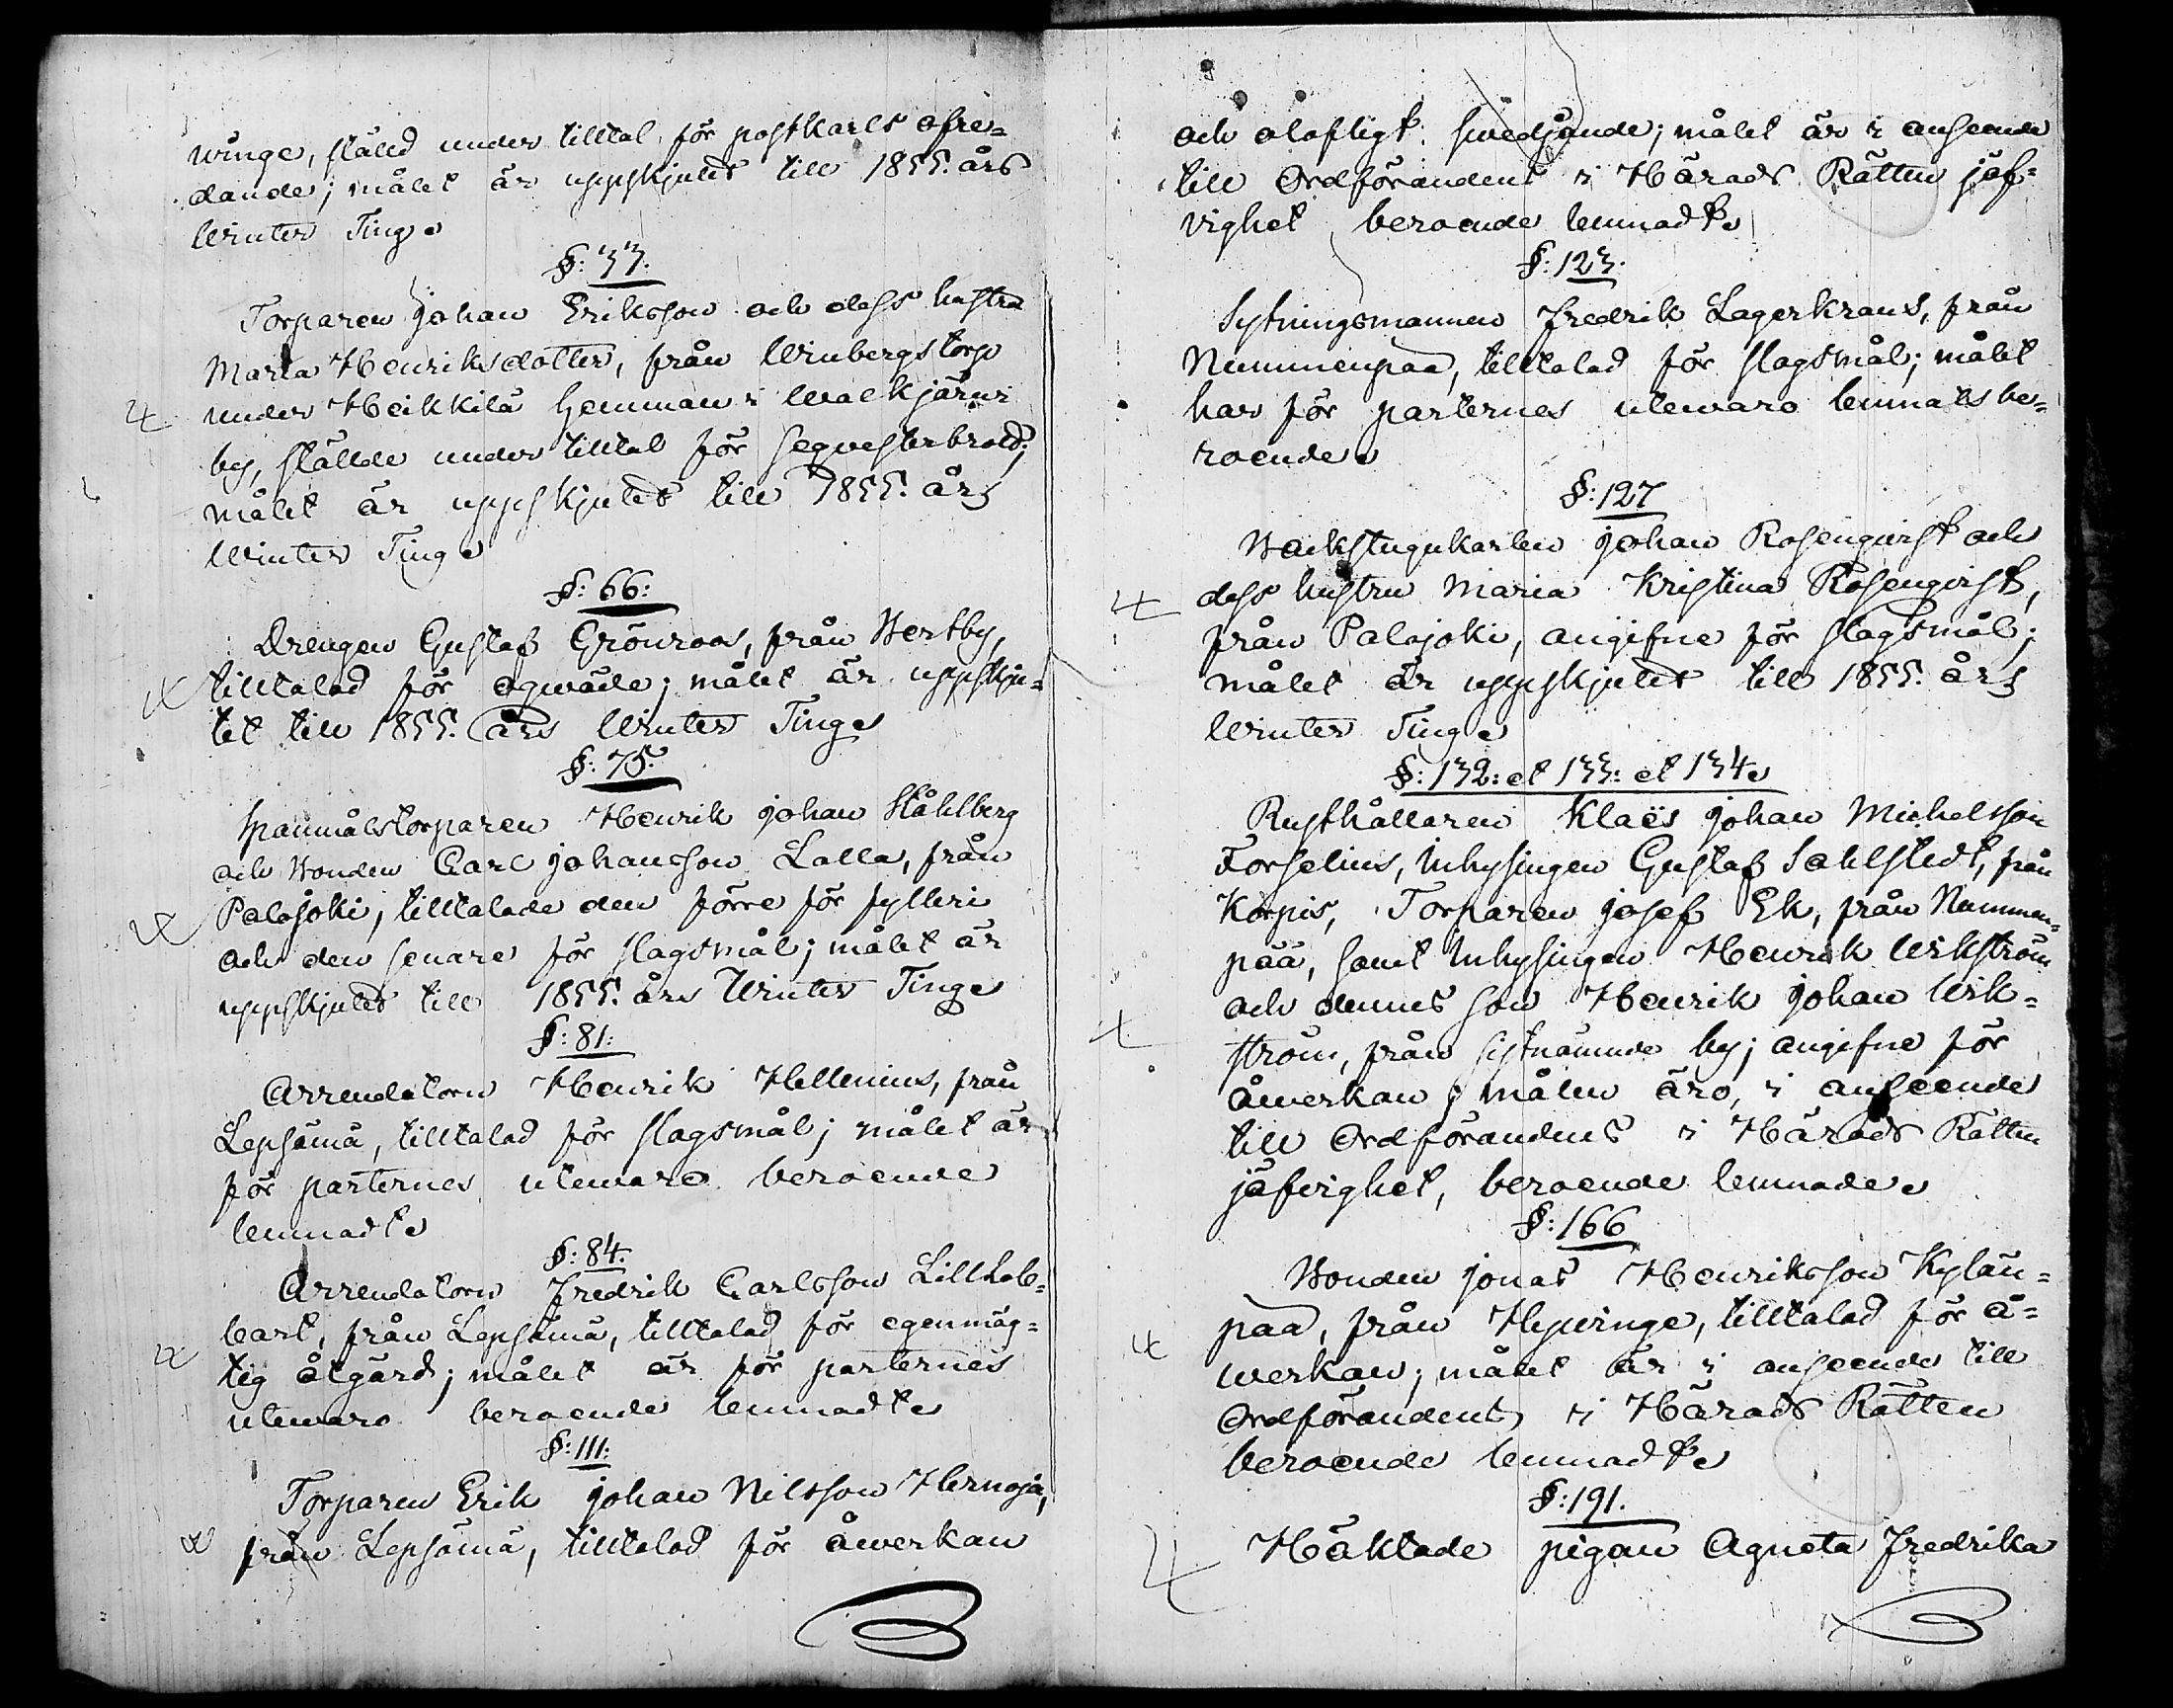 winge, stäld under tilltal för postkarls ofre=
dande; målet är uppskjutet till 1855. års
Winter Ting.
§: 33.
Torparen Johan Eriksson och dess hustru
Maria Henriksdotter, från Winbergs torp
under Heikkilä hemman i Walkjärwi
by, stälde under tilltal för seqvesterbrott;
målet är uppskjutet till 1855. års
Winter Ting.
§: 66:
Drengen Gustaf Grönroos, från Hertby,
tilltalad för ogwäde; målet är uppskju=
tet till 1855. års Winter Ting.
§: 75.
Spanmålstorparen Henrik Johan Ståhlberg
och Bonden Carl Johansson Lalla, från
Palojoki, tilltalade den förre för fylleri
och den senare för slagsmål; målet är
uppskjutet till 1855. års Winter Ting.
§: 81:
Arrendatorn Henrik Hellenius, från
Lepsämä, tilltalad för slagsmål; målet är
för parternes utewaro beroende
lemnadt.
§: 84.
Arrendatorn Fredrik Carlsson Lillhol=
bart, från Lepsämä, tilltalad för egenmäg=
tig åtgärd; målet är för parternes
utewaro beroende lemnadt.
§: 111:
Torparen Erik Johan Nilsson Hernoja,
från Lepsämä, tilltalad för åwerkan
och olofligt swedjande; målet är i anseende
till Ordförandens i Härads Rätten jäf=
vighet beroende lemnadt.
§: 123.
Sytningsmannen Fredrik Lagerkrans, från
Nummenpää, tilltalad för slagsmål; målet
har för parternes utewaro lemnats be=
roende.
§: 127
Backstugukarlen Johan Rosenqvist och
dess hustru Maria Kristina Rosenqvist,
från Palojoki, angifne för slagsmål;
målet är uppskjutet till 1855. års
Winter Ting.
§: 132: et 133: et 134.
Rusthållaren Klaës Johan Michelsson
Forselius, Inhysingen Gustaf Sahlstedt, från
Korpis, Torparen Josef Ek, från Nummen=
pää, samt Inhysingen Henrik Wikström
och dennes son Henrik Johan Wik=
ström, från sistnämnde by; angifne för
åwerkan; målen äro, i anseende
till Ordförandens i Härads Rätten
jäfvighet, beroende lemnade.
§: 166
Bonden Jonas Henriksson Kylän=
pää, från Hywinge, tilltalad för å=
werkan; målet är i anseende till
Ordförandens i Härads Rätten
beroende lemnadt.
§: 191.
Häktade pigan Agneta Fredrika